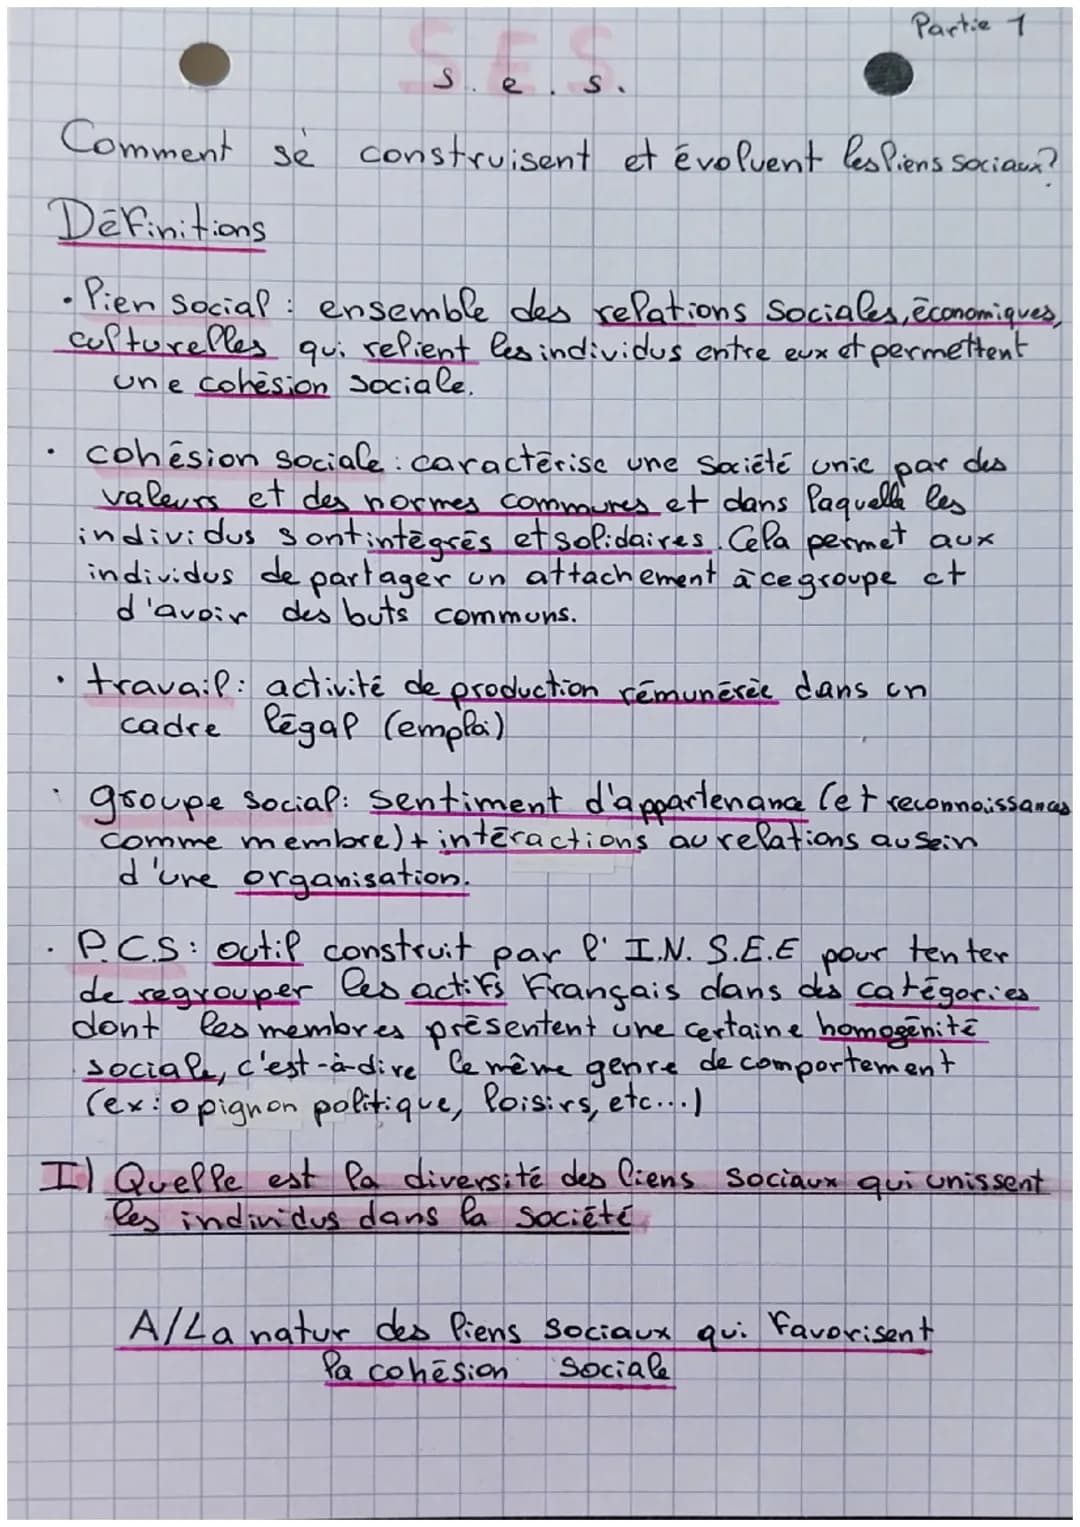 Partie 1
SES
s. e. s.
Comment se construisent et évoluent les liens sociaux?
Définitions
• lien social : ensemble des relations sociales, économiques,
culturelles qui relient les individus entre eux et permettent
une cohésion sociale.
• cohésion sociale : caractérise une société unie par des
valeurs et des normes communes et dans laquelle les
individus sont intégrés et solidaires. Cela permet aux
individus de partager un attachement à ce groupe et
d'avoir des buts communs.
• travail : activité de production rémunérée dans un
cadre légal (emploi)
• groupe social : sentiment d'appartenance (et reconnaissances
comme membre) + intéractions au relations au sein
d'une organisation.
• P.C.S : outil construit par l' I.N.S.E.E pour tenter
de regrouper les actifs Français dans des catégories
dont les membres présentent une certaine homogénité
sociale, c'est-à-dire le même genre de comportement
(ex: opignon politique, loisirs, etc...)
I) Quelle est la diversité des liens sociaux qui unissent
les individus dans la société
A/ La natur des liens sociaux qui favorisent
la cohésion sociale